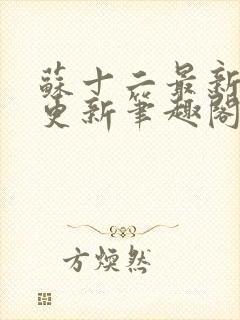 蘇十二最新
更新筆趣閣
方煥然